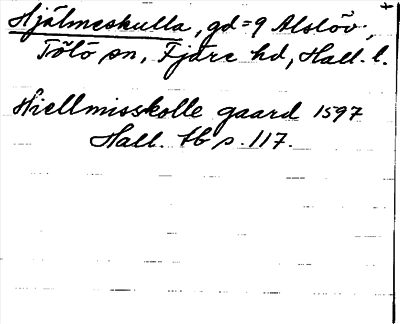 Hjälmeskulla, gd = 9 Alslöv,
Tölö sn, Fjäre hd, Hall. l.
Hiellmisskolle gaard 1597
Hall. tb s. 117.